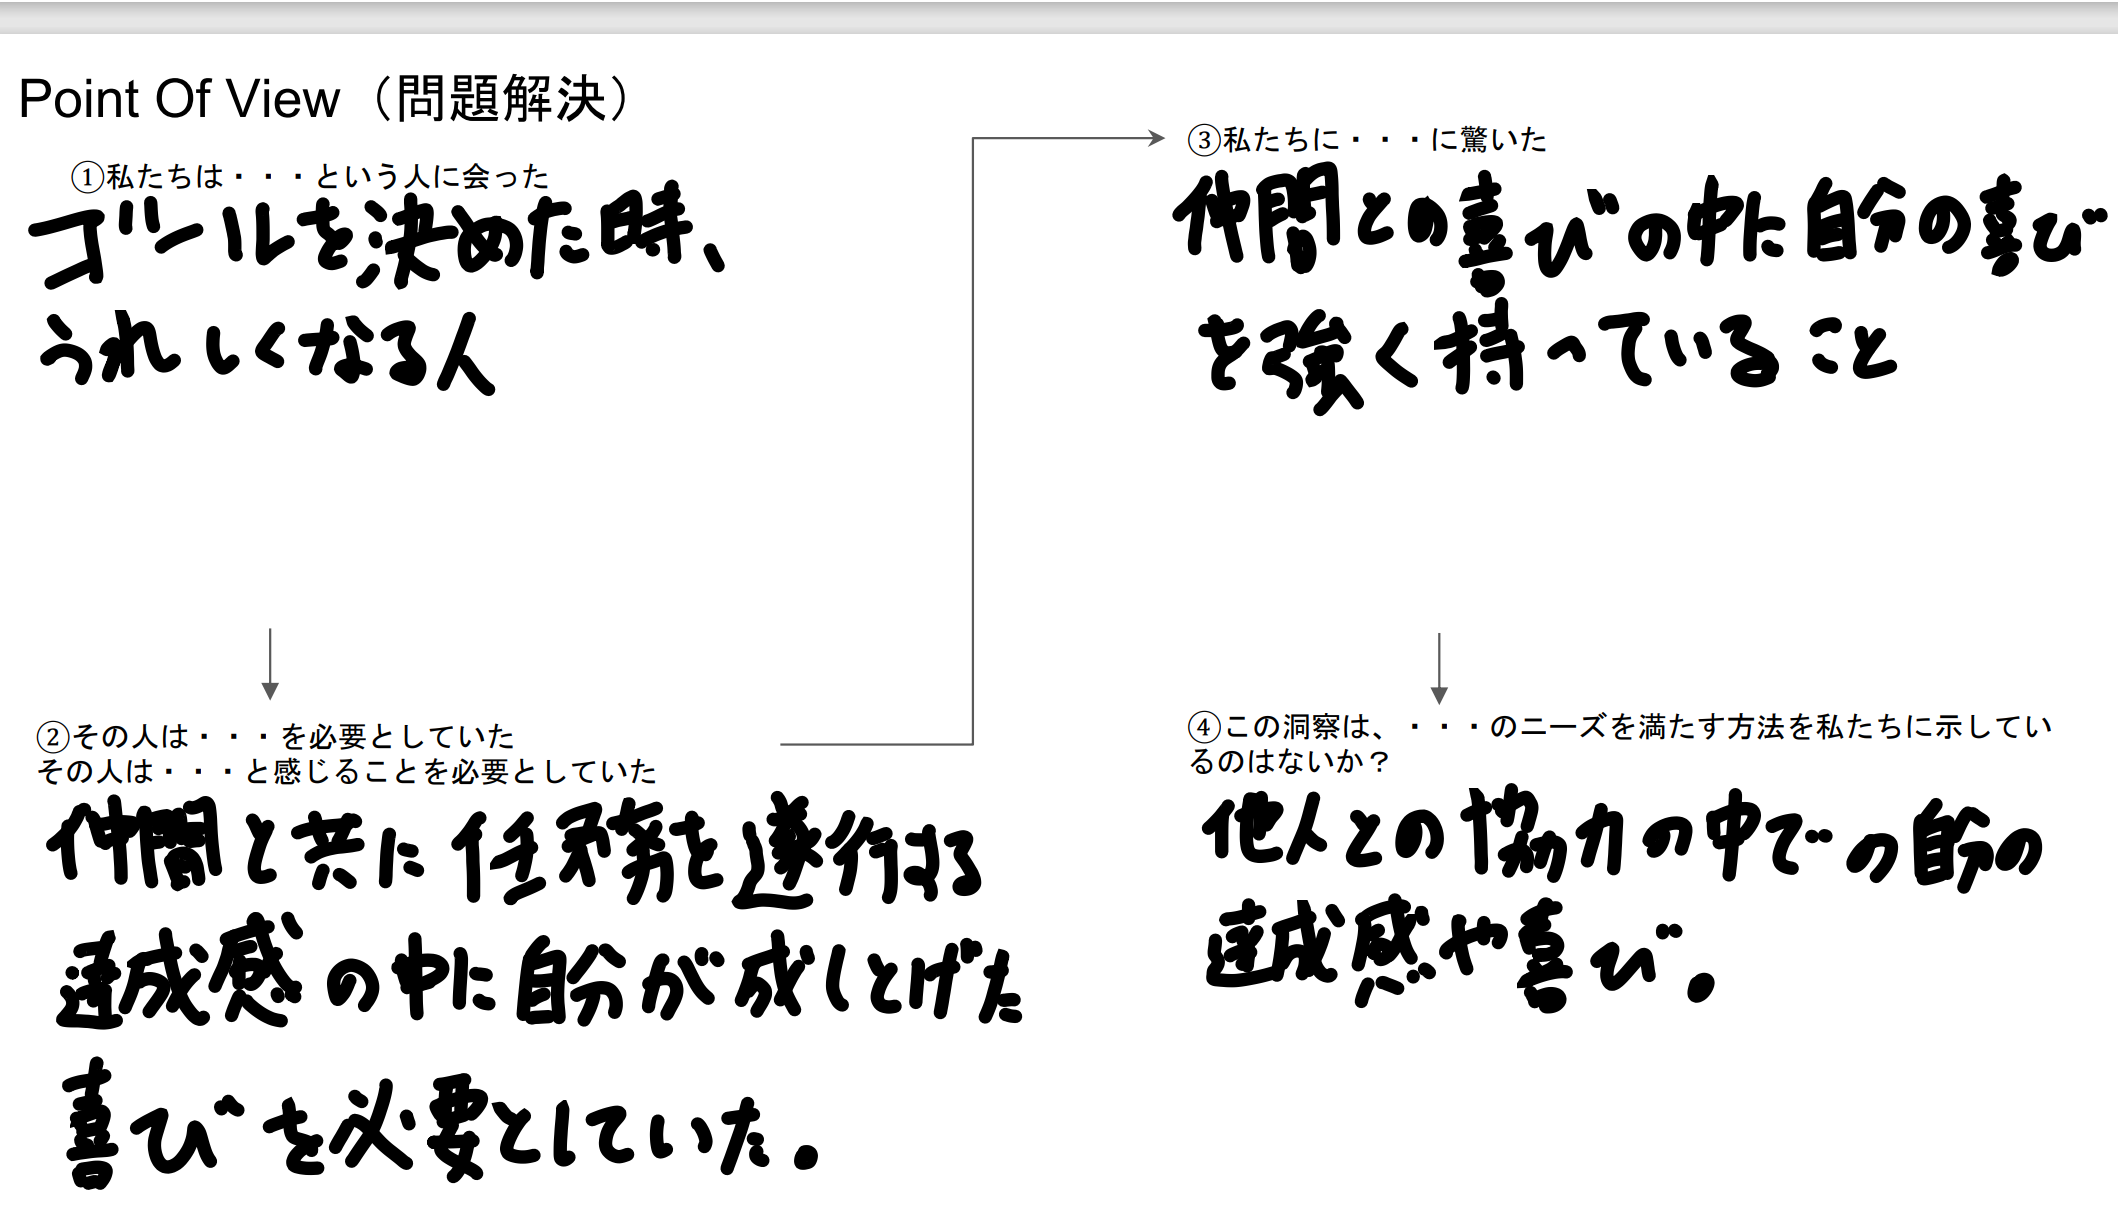 Point Of View（問題解決）
①私たちは・・・という人に会った
ゴールを決めた時、
うれしくなる人
②その人は・・・を必要としていた
その人は・・・と感じることを必要としていた
仲間と共に任務を遂行する
達成感の中に自分が成しとげた
喜びを必要としていた。
③私たちに・・・に驚いた
仲間との喜びの中に自分の喜び
を強く持っていること
④この洞察は、・・・のニーズを満たす方法を私たちに示してい
るのはないか？
他人との協力の中での自分の
達成感や喜び。